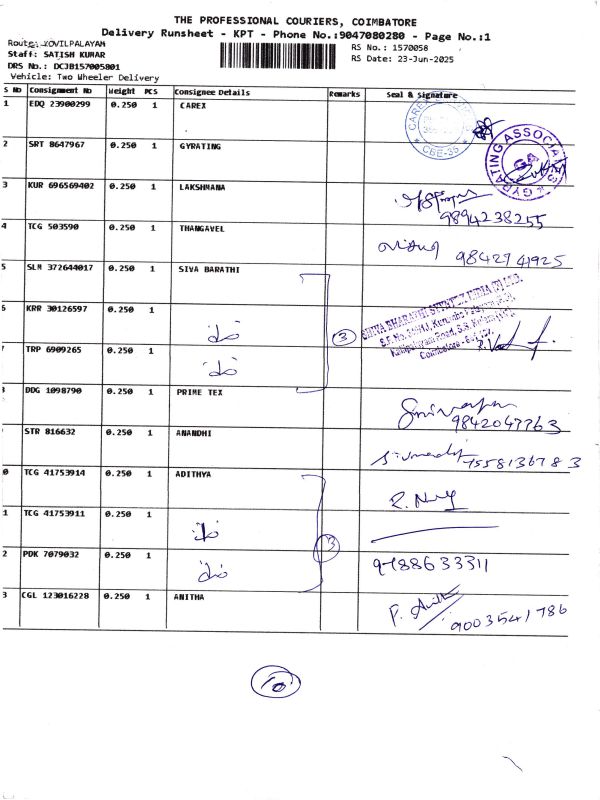 THE PROFESSIONAL COURIERS, COIMBATORE
Delivery Runsheet - KPT - Phone No.:9047080280 - Page No.:1
Route: KOVILPALAYAM
Staff: SATISH KUMAR
DRS No.: DCJB157005801
Vehicle: Two Wheeler Delivery
RS No.: 1570058
RS Date: 23-Jun-2025
S No Consignment No Weight PCS Consignee Details Remarks Seal & Signature
1 EDQ 23900299 0.250 1 CAREX
CBE-35
2 SRT 8647967 0.250 1 GYRATING
GYRATING ASSOCIATES
3 KUR 696569402 0.250 1 LAKSHMANA
9894238255
4 TCG 503590 0.250 1 THANGAVEL
9842741925
5 SLM 372644017 0.250 1 SIVA BARATHI
6 KRR 30126597 0.250 1
7 TRP 6909265 0.250 1
3
Coimbatore
DDG 1098790 0.250 1 PRIME TEX
9842047763
STR 816632 0.250 1 ANANDHI
7558136783
0 TCG 41753914 0.250 1 ADITHYA
1 TCG 41753911 0.250 1
3
2 PDK 7079032 0.250 1
9788633311
3 CGL 123016228 0.250 1 ANITHA
P. Anitha
9003541786
10